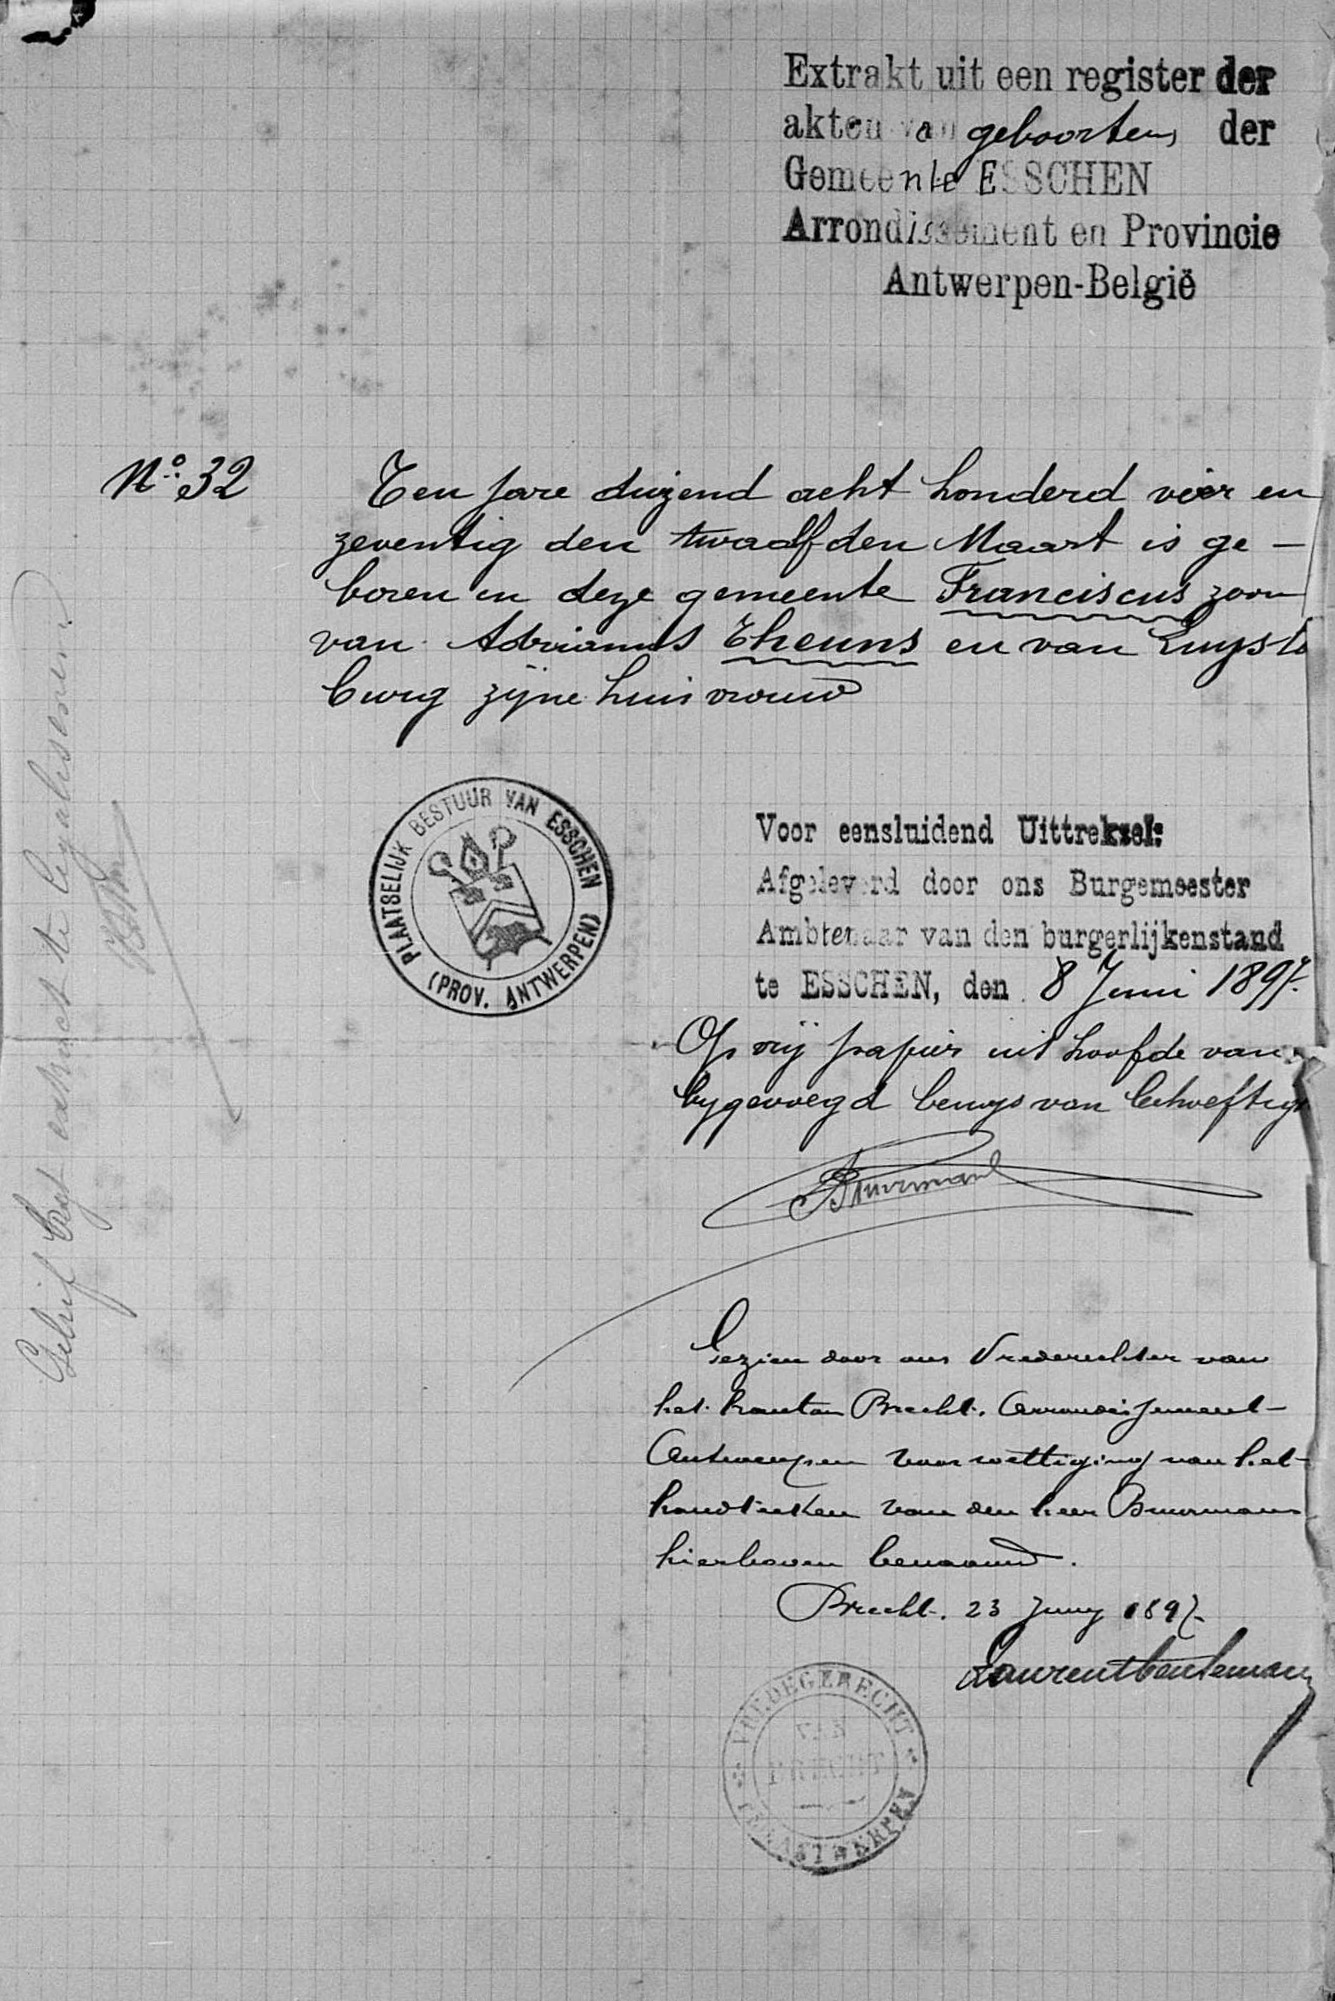 Extrakt uit een register der
akten van geboorten der
Gemeente ESSCHEN
Arrondissement en Provincie
Antwerpen-België
No. 32
Ten jare duizend acht honderd vier en
zeventig den twaalfden Maart is ge-
boren in deze gemeente Franciscus zoon
van Adrianus Theuns en van Luysb
burg zijne huisvrouw
PLAATSELIJK BESTUUR VAN ESSCHEN
(PROV. ANTWERPEN)
Voor eensluidend Uittreksel:
Afgeleverd door ons Burgemeester
Ambtenaar van den burgerlijkenstand
te ESSCHEN, den 8 Juni 1897.
Op vrij papier uit hoofde van
bygevoegd bewys van behoeftig
Gezien door ons Vrederechter van
het kanton Brecht. Arrondissement
Antwerpen voor wettiging van het
handteeken van den heer Buurmans
hierboven benaamd.
Brecht. 23 Juny 1897
VREDEGERECHT
VAN
BRECHT
ANTWERPEN
Gelief het extract te legaliseren